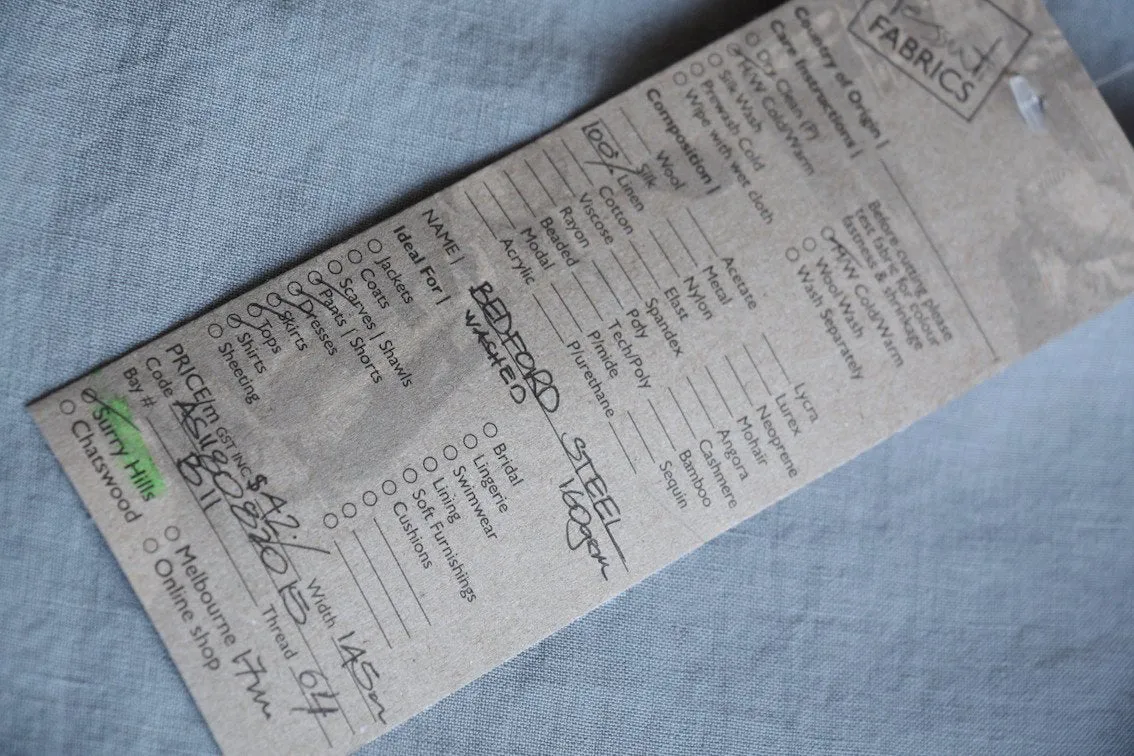 FABRICS
Country of Origin |
Care Instructions |
Dry Clean (P)
H/W Cold/Warm
Silk Wash
Prewash Cold
Wipe with wet cloth
Before cutting please
test fabric for colour
fastness & shrinkage
H/W Cold/Warm
Wool Wash
Wash Separately
Composition |
Wool Acetate Lycra
Silk Metal Lurex
100% Linen Nylon Neoprene
Cotton Elast Mohair
Viscose Spandex Angora
Rayon Poly Cashmere
Beaded Tech/Poly Bamboo
Modal P/mide Sequin
Acrylic P/urethane
NAME | BEDFORD STEEL
WASHED 160gsm
Ideal For |
Jackets Bridal
Coats Lingerie
Scarves | Shawls Swimwear
Pants | Shorts Lining
Dresses Soft Furnishings
Skirts Cushions
Tops
Shirts
Sheeting
PRICE/m GST INC $ 42/ Width 145cm
Code Thread 64
Bay # B11
Surry Hills Melbourne 17m
Chatswood Online shop